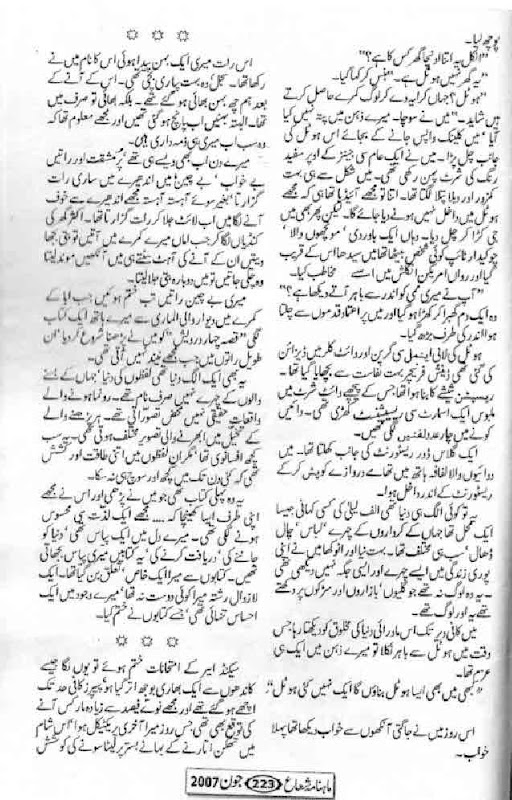 پوچھ لیا۔
"انکل یہ اتنا اونچا گھر کس کا ہے؟"
"یہ گھر نہیں ہوٹل ہے۔" ہنس کر کہا گیا۔
"ہوٹل؟ جہاں کرایہ دے کر لوگ کمرے حاصل کرتے
ہیں شاید۔" میں نے سوچا۔ میرے ذہن میں پتہ نہیں کیا
آیا' میں کلینک واپس جانے کے بجائے اس ہوٹل کی
جانب چل پڑا۔ میں نے ایک عام سی جینز کے اوپر سفید
رنگ کی شرٹ پہن رکھی تھی۔ میں شکل سے ہی بہت
کمزور اور دبلا پتلا لگتا تھا۔ اتنا تو مجھے آئیڈیا تھا ہی کہ مجھے
ہوٹل میں داخل نہیں ہونے دیا جائے گا۔ لیکن پھر بھی میں
جی کڑا کر چل دیا۔ وہاں ایک باوردی' مونچھوں والا'
چوکیدار ٹائپ کوئی شخص بیٹھا تھا میں سیدھا اس کے قریب
گیا اور رواں امریکن انگلش میں اسے مخاطب کیا۔
"آپ نے میری ممی کو اندر سے باہر آتے دیکھا ہے؟"
وہ ایک دم گھبرا کر کھڑا ہو گیا اور میں پر اعتماد قدموں سے چلتا
ہوا اندر کی طرف بڑھ گیا۔
ہوٹل کی لابی ایملی سی گرین اور وائٹ کلر میں ڈیزائن
کی گئی تھی ڈیفش فرنیچر بہت نفاست سے بچھایا گیا تھا۔
ریسپشن شیشے کا بنا ہوا تھا جس کے پیچھے وائٹ شرٹ میں
ملبوس ایک اسمارٹ سی ریسپشنسٹ کھڑی تھی۔ دائیں
کونے میں چار عدد لفٹس لگی تھیں۔
ایک گلاس ڈور ریسٹورنٹ کی جانب کھلتا تھا۔ میں
دوائیوں والا لفافہ ہاتھ میں تھامے دروازے کو پش کر کے
ریسٹورنٹ کے اندر داخل ہوا۔
یہ تو کوئی الگ ہی دنیا تھی الف لیلیٰ کی کسی کہانی جیسا
ایک محل تھا جہاں کے کرداروں کے چہرے' لباس' چال
ڈھال' سب ہی مختلف تھا۔ بہت نیا اور انوکھا میں نے اپنی
پوری زندگی میں ایسے چہرے اور ایسی جگہ نہیں دیکھی تھی
۔ یہ وہ لوگ نہ تھے جو گلیوں' بازاروں اور سڑکوں پر دکھتے
تھے یہ اور لوگ تھے۔
میں کافی دیر تک اس ماورائی دنیا کی مخلوق کو دیکھتا رہا جس
وقت میں ہوٹل سے باہر نکلا تو میرے ذہن میں ایک ہی
عزم تھا۔
"کبھی میں بھی ایسا ہوٹل بناؤں گا ایک نہیں کئی ہوٹل"
اس روز میں نے جاگتی آنکھوں سے خواب دیکھا تھا پہلا
خواب۔
اس رات میری ایک بہن پیدا ہوئی اس کا نام میں نے
رکھا تھا۔ سجل وہ بہت پیاری بچی تھی۔ اس کے آنے کے
بعد ہم چھ بہن بھائی ہو گئے تھے۔ بلکہ بھائی تو صرف میں
تھا۔ البتہ بہنیں اب پانچ ہو گئی تھیں اور مجھے معلوم تھا کہ
وہ سب اب میری ہی ذمہ داری ہیں۔
میرے دن اب بھی ویسے ہی تھے' پر مشقت اور راتیں
بے خواب' بے چین میں اندھیرے میں ساری رات
گزارتا' بغیر سوئے آہستہ آہستہ مجھے اندھیرے سے خوف
آنے لگا میں اب لائٹ جلا کر رات گزارتا تھا۔ اکثر گھر کی
کنڈیاں لگا کر جب اماں میرے کمرے میں آتیں تو بتی بجھا
دیتیں ان کے آنے کی آہٹ سنتے ہی میں آنکھیں موند لیتا
وہ چلی جاتیں تو میں دوبارہ بتی جلا لیتا۔
میری بے چین راتیں تب ختم ہوئیں جب ابا کے
کمرے میں دیوار والی الماری سے میرے ہاتھ ایک کتاب
لگی "قصہ چہار درویش" کو میں نے پڑھنا شروع کر دیا' ان
طویل راتوں میں جب مجھے نیند نہیں آتی تھی۔
یہ بھی ایک الگ دنیا تھی لفظوں کی دنیا' جہاں کے بسنے
والوں کے چہرے نہیں صرف نام تھے۔ رونما ہونے والے
واقعات حقیقی نہیں محض تصوراتی تھے۔ ہر پڑھنے والے
کے تخیل میں ابھرنے والی تصویر مختلف ہوتی تھی۔ یہ سب
کچھ افسانوی تھا' مگر ان لفظوں میں اتنی طاقت اور کشش
تھی کہ کئی دن تک میں کچھ اور سوچ ہی نہ سکا۔
یہ وہ پہلی کتاب تھی جو میں نے پڑھی اور اس نے مجھے
اپنی طرف ایسا کھینچا کہ.... مجھے ایک لذت سی محسوس
ہونے لگی تھی۔ میرے دل میں ایک پیاس تھی' دنیا کو
جاننے کی' دریافت کرنے کی' یہ کتابیں میری پیاس بجھاتی
تھیں۔ کتابوں سے میرا ایک خاص' تعلق بن گیا تھا۔ ایک
لازوال رشتہ میرا کوئی دوست نہ تھا' میرے وجود میں ایک
احساس تنہائی تھی' جسے کتابوں نے ختم کیا۔
سیکنڈ ایئر کے امتحانات ختم ہوئے تو یوں لگا جیسے
کاندھوں سے ایک بھاری بوجھ اتر گیا ہو' پیپرز کافی حد تک
اچھے ہو گئے تھے اور مجھے نوے فیصد سے زیادہ مارکس آنے
کی توقع بھی تھی' جس روز میرا آخری پریکٹیکل ہوا' اس شام
میں تھکن اتارنے کے بہانے بستر پر لیٹا سونے کی کوشش
ماہنامہ شعاع 223 جون 2007